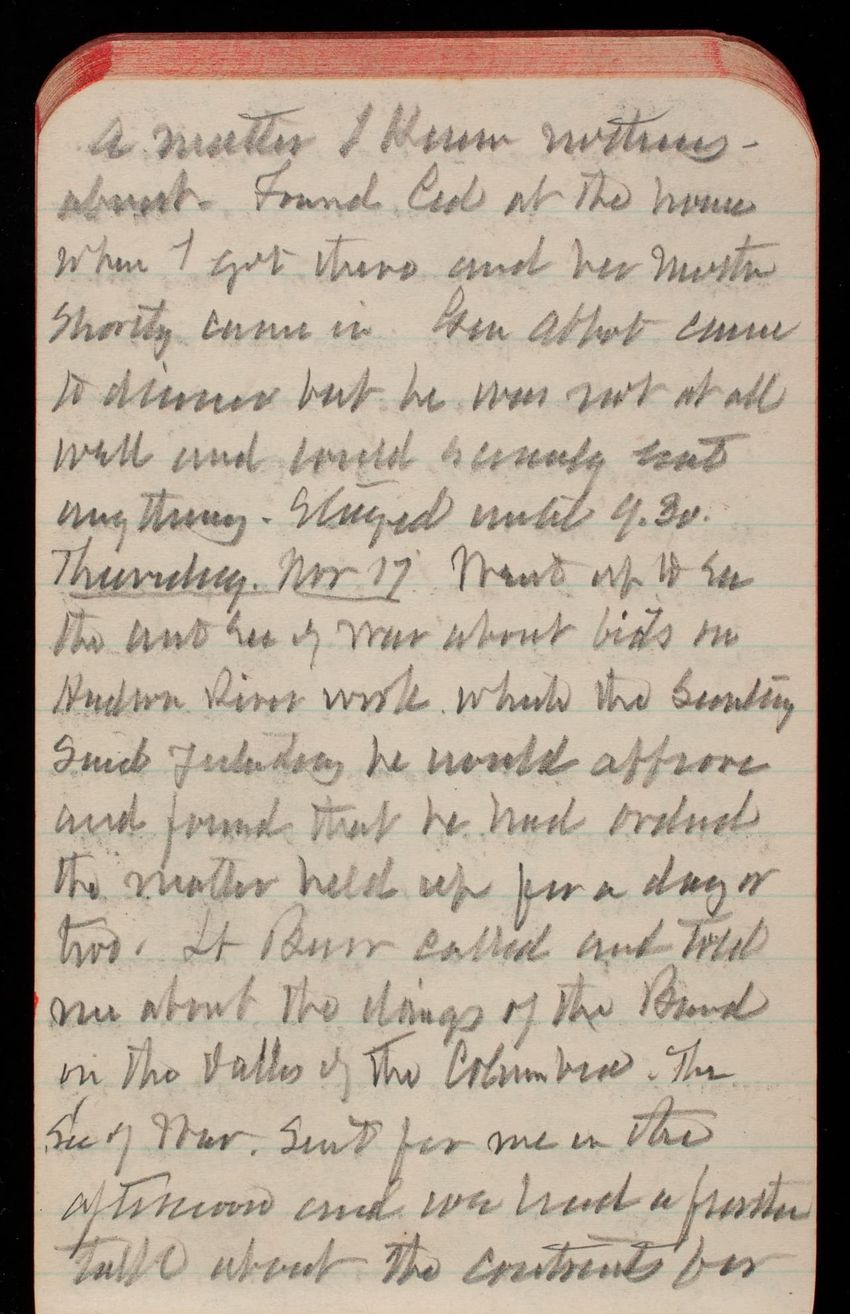 a matter I Know nothing -
about. Found Ced at the house
when I got there and her Mother
Shortly came in Gen Abbot came
to dinner but he was not at all
well and could scarcely eat
anything. Stayed until 9.30.
Thursday. Nov 17 Went up to See
the Sec of War about bids on
Hudson River work which the Secretary
Said yesterday he would approve
and found that he had ordered
the matter held up for a day or
two. Lt Burr called and told
me about the doings of the Board
on the Dalles of the Columbia. The
Sec of War. Sent for me in the
afternoon and we had a further
talk about the contracts for